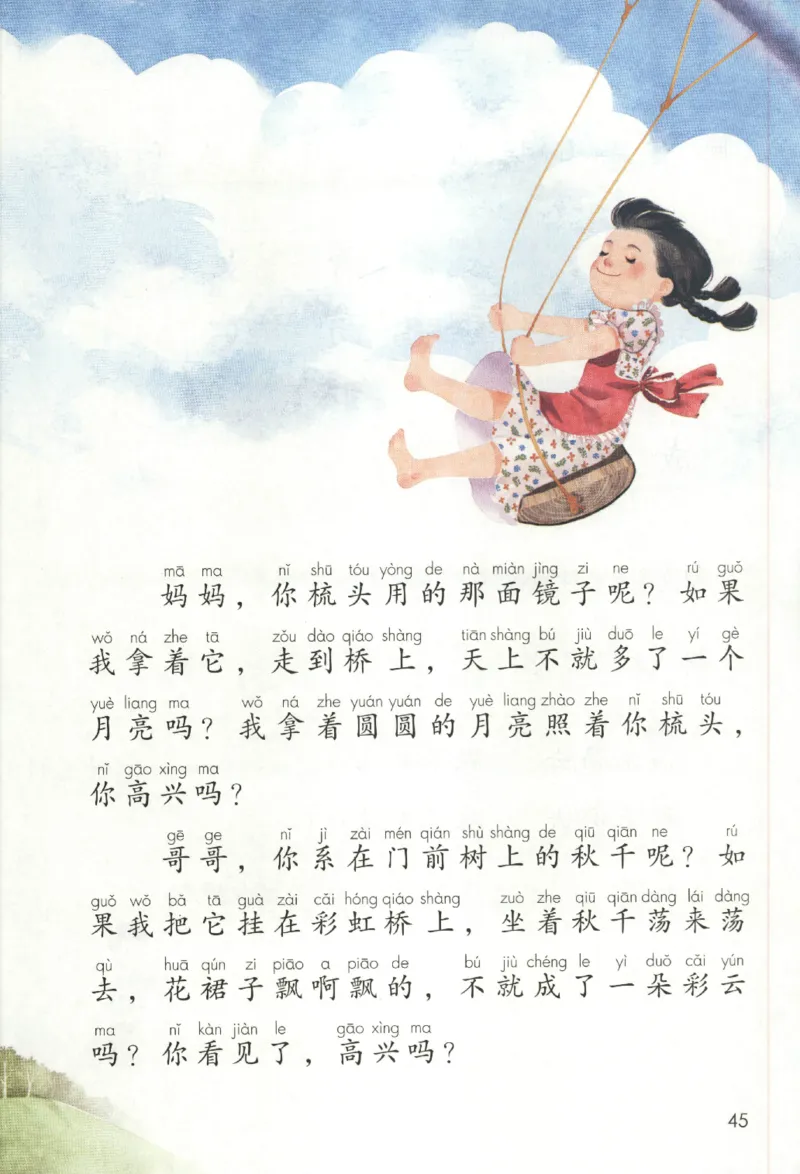 mā ma nǐ shū tóu yòng de nà miàn jìng zi ne rú guǒ
妈妈，你梳头用的那面镜子呢？如果
wǒ ná zhe tā zǒu dào qiáo shàng tiān shàng bú jiù duō le yí gè
我拿着它，走到桥上，天上不就多了一个
yuè liang ma wǒ ná zhe yuán yuán de yuè liang zhào zhe nǐ shū tóu
月亮吗？我拿着圆圆的月亮照着你梳头，
nǐ gāo xìng ma
你高兴吗？
gē ge nǐ jì zài mén qián shù shàng de qiū qiān ne rú
哥哥，你系在门前树上的秋千呢？如
guǒ wǒ bǎ tā guà zài cǎi hóng qiáo shàng zuò zhe qiū qiān dàng lái dàng
果我把它挂在彩虹桥上，坐着秋千荡来荡
qù huā qún zi piāo a piāo de bú jiù chéng le yì duǒ cǎi yún
去，花裙子飘啊飘的，不就成了一朵彩云
ma nǐ kàn jiàn le gāo xìng ma
吗？你看见了，高兴吗？
45